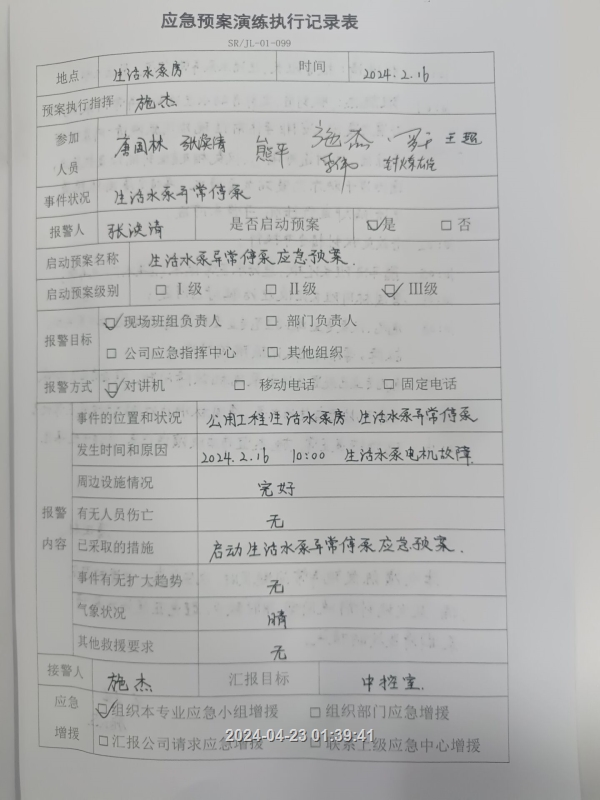 应急预案演练执行记录表
SR/JL-01-099
地点 生活水泵房 时间 2024.2.16
预案执行指挥 施杰
参加人员 唐国林 张焕清 熊平 施杰 王超
李伟
事件状况 生活水泵异常停泵
报警人 张焕清 是否启动预案 ☑是 □否
启动预案名称 生活水泵异常停泵应急预案.
启动预案级别 □Ⅰ级 □Ⅱ级 ☑Ⅲ级
报警目标 ☑现场班组负责人 □部门负责人
□公司应急指挥中心 □其他组织
报警方式 ☑对讲机 □移动电话 □固定电话
报警内容 事件的位置和状况 公用工程生活水泵房 生活水泵异常停泵
发生时间和原因 2024.2.16 10:00 生活水泵电机故障.
周边设施情况 完好
有无人员伤亡 无
已采取的措施 启动生活水泵异常停泵应急预案.
事件有无扩大趋势 无
气象状况 晴
其他救援要求 无
接警人 施杰 汇报目标 中控室.
应急增援 ☑组织本专业应急小组增援 □组织部门应急增援
□汇报公司请求应急增援 □联系上级应急中心增援
2024-04-23 01:39:41